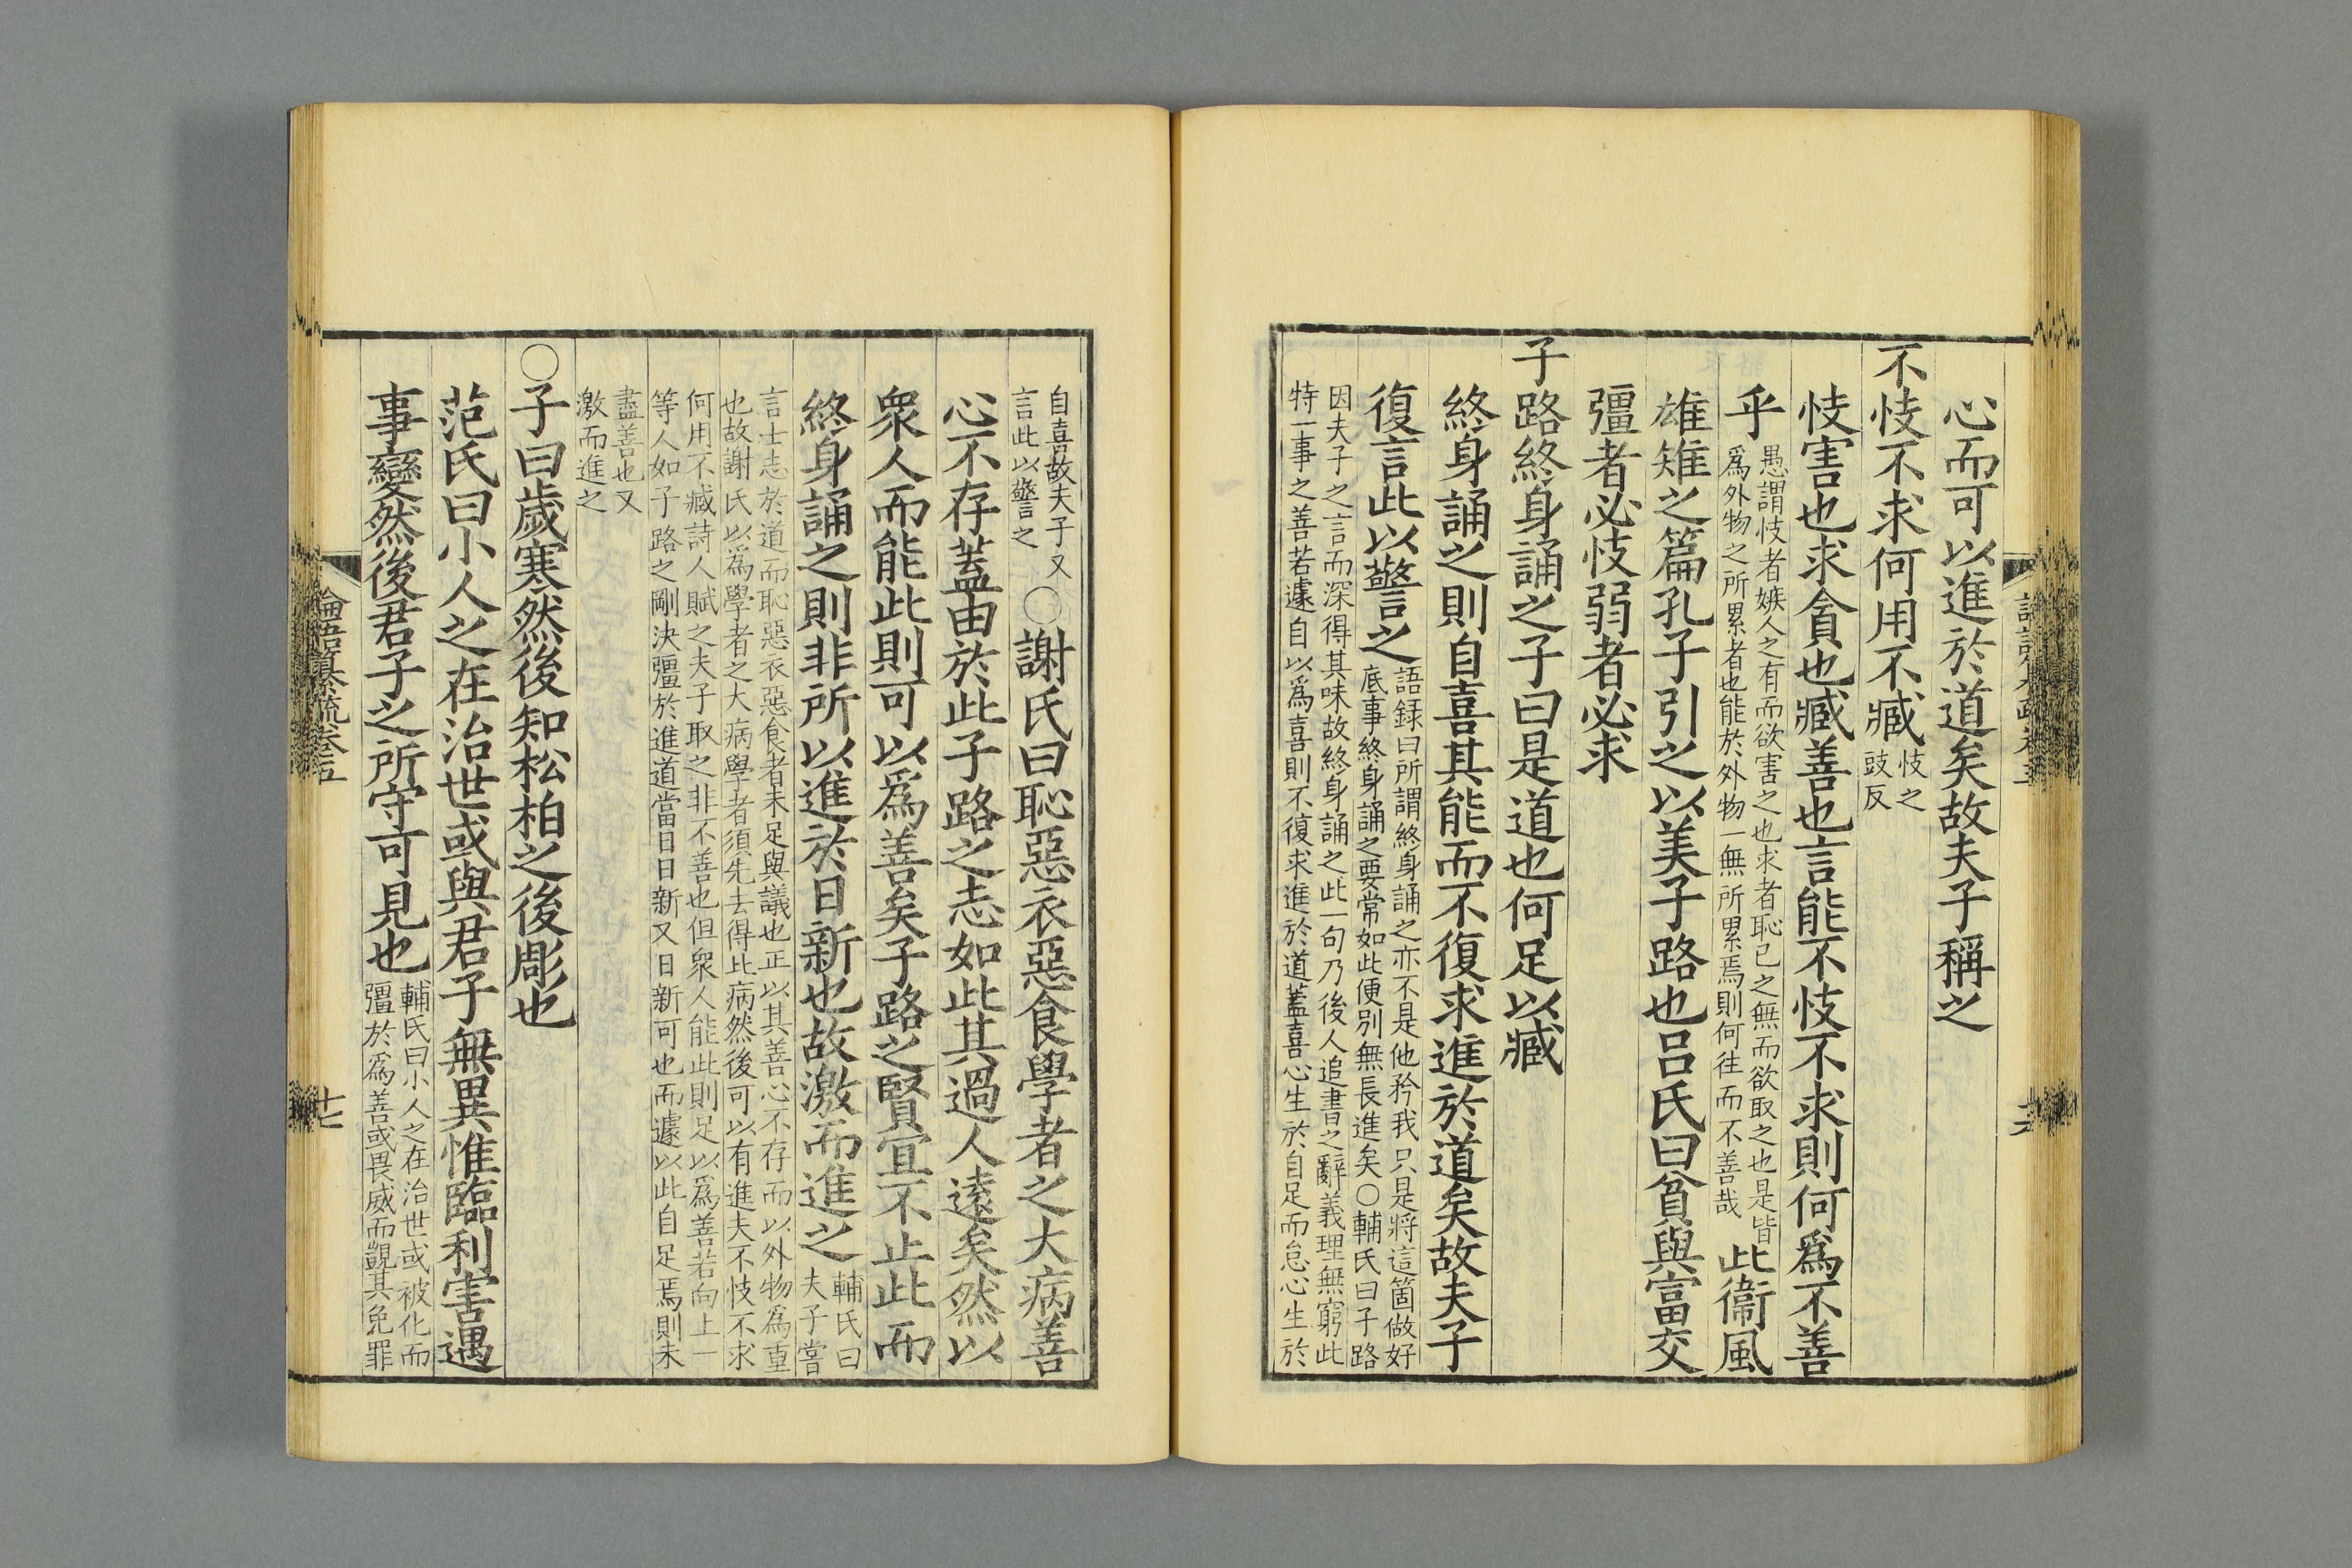 心而可以進於道矣故夫子稱之
不忮不求何用不臧忮之豉反
忮害也求貪也臧善也言能不忮不求則何爲不善
乎愚謂忮者嫉人之有而欲害之也求者恥己之無而欲取之也是皆爲外物之所累者也能於外物一無所累焉則何往而不善哉此衞風
雄雉之篇孔子引之以美子路也吕氏曰貧與富交
彊者必忮弱者必求
子路終身誦之子曰是道也何足以臧
終身誦之則自喜其能而不復求進於道矣故夫子
復言此以警之語録曰所謂終身誦之亦不是他矜我只是將這箇做好底事終身誦之要常如此便别無長進矣○輔氏曰子路
因夫子之言而深得其味故終身誦之此一句乃後人追書之辭義理無窮此
特一事之善若遽自以爲喜則不復求進於道蓋喜心生於自足而怠心生於
自喜故夫子又言此以警之○謝氏曰恥惡衣惡食學者之大病善
心不存蓋由於此子路之志如此其過人遠矣然以
衆人而能此則可以爲善矣子路之賢宜不止此而
終身誦之則非所以進於日新也故激而進之輔氏曰夫子嘗
言士志於道而恥惡衣惡食者未足與議也正以其善心不存而以外物爲重
也故謝氏以爲學者之大病學者須先去得此病然後可以有進夫不忮不求
何用不臧詩人賦之夫子取之非不善也但衆人能此則足以爲善若向上一
等人如子路之剛決彊於進道當日日新又日新可也而遽以此自足焉則未
盡善也又
激而進之
○子曰歲寒然後知松柏之後彫也
范氏曰小人之在治世或與君子無異惟臨利害遇
事變然後君子之所守可見也輔氏曰小人之在治世或被化而彊於爲善或畏威而覬其免罪
論語纂疏卷五
十七